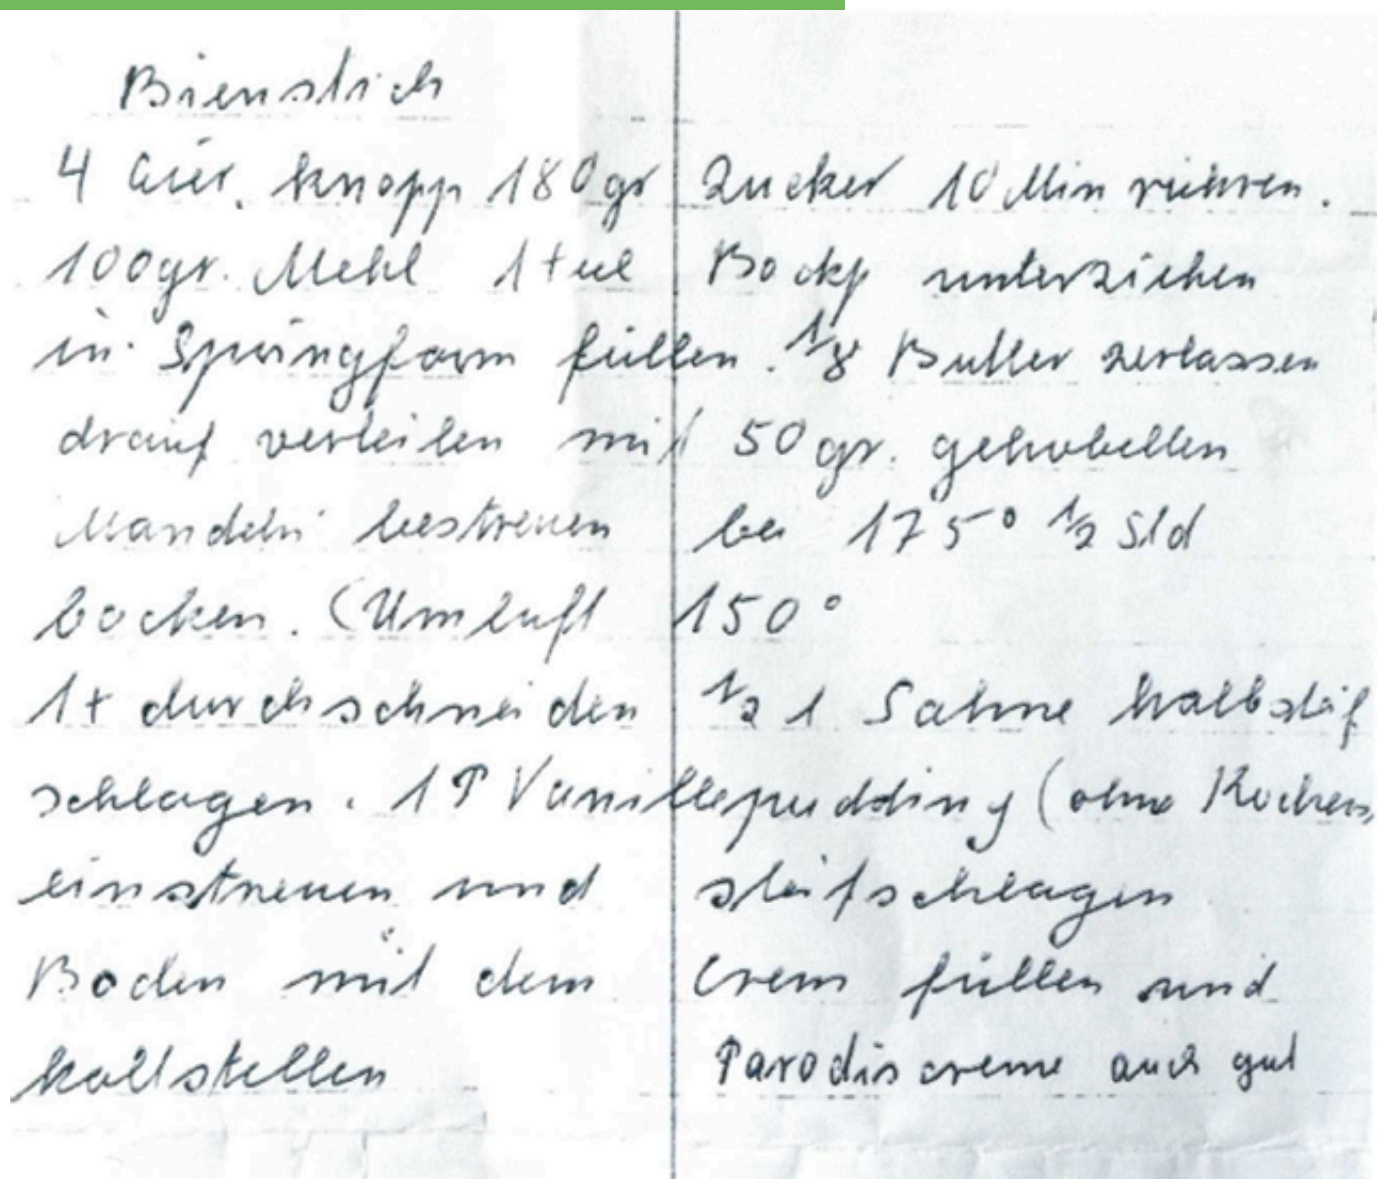 Bienstich
4 Eier, knapp 180gr Zucker 10 Min rühren.
100gr. Mehl 1 teel Backp unterziehen
in Springform füllen. 1/8 Butter zerlassen
drauf verteilen mit 50gr. gehobelten
Mandeln bestreuen bei 175° 1/2 Std
backen. (Umluft 150°
1+ durchschneiden 1/2 l Sahne halbsteif
schlagen. 1P Vanillepudding (ohne Kochen)
einstreuen und steifschlagen
Boden mit dem Crem füllen und
kaltstellen Paradiscreme auch gut